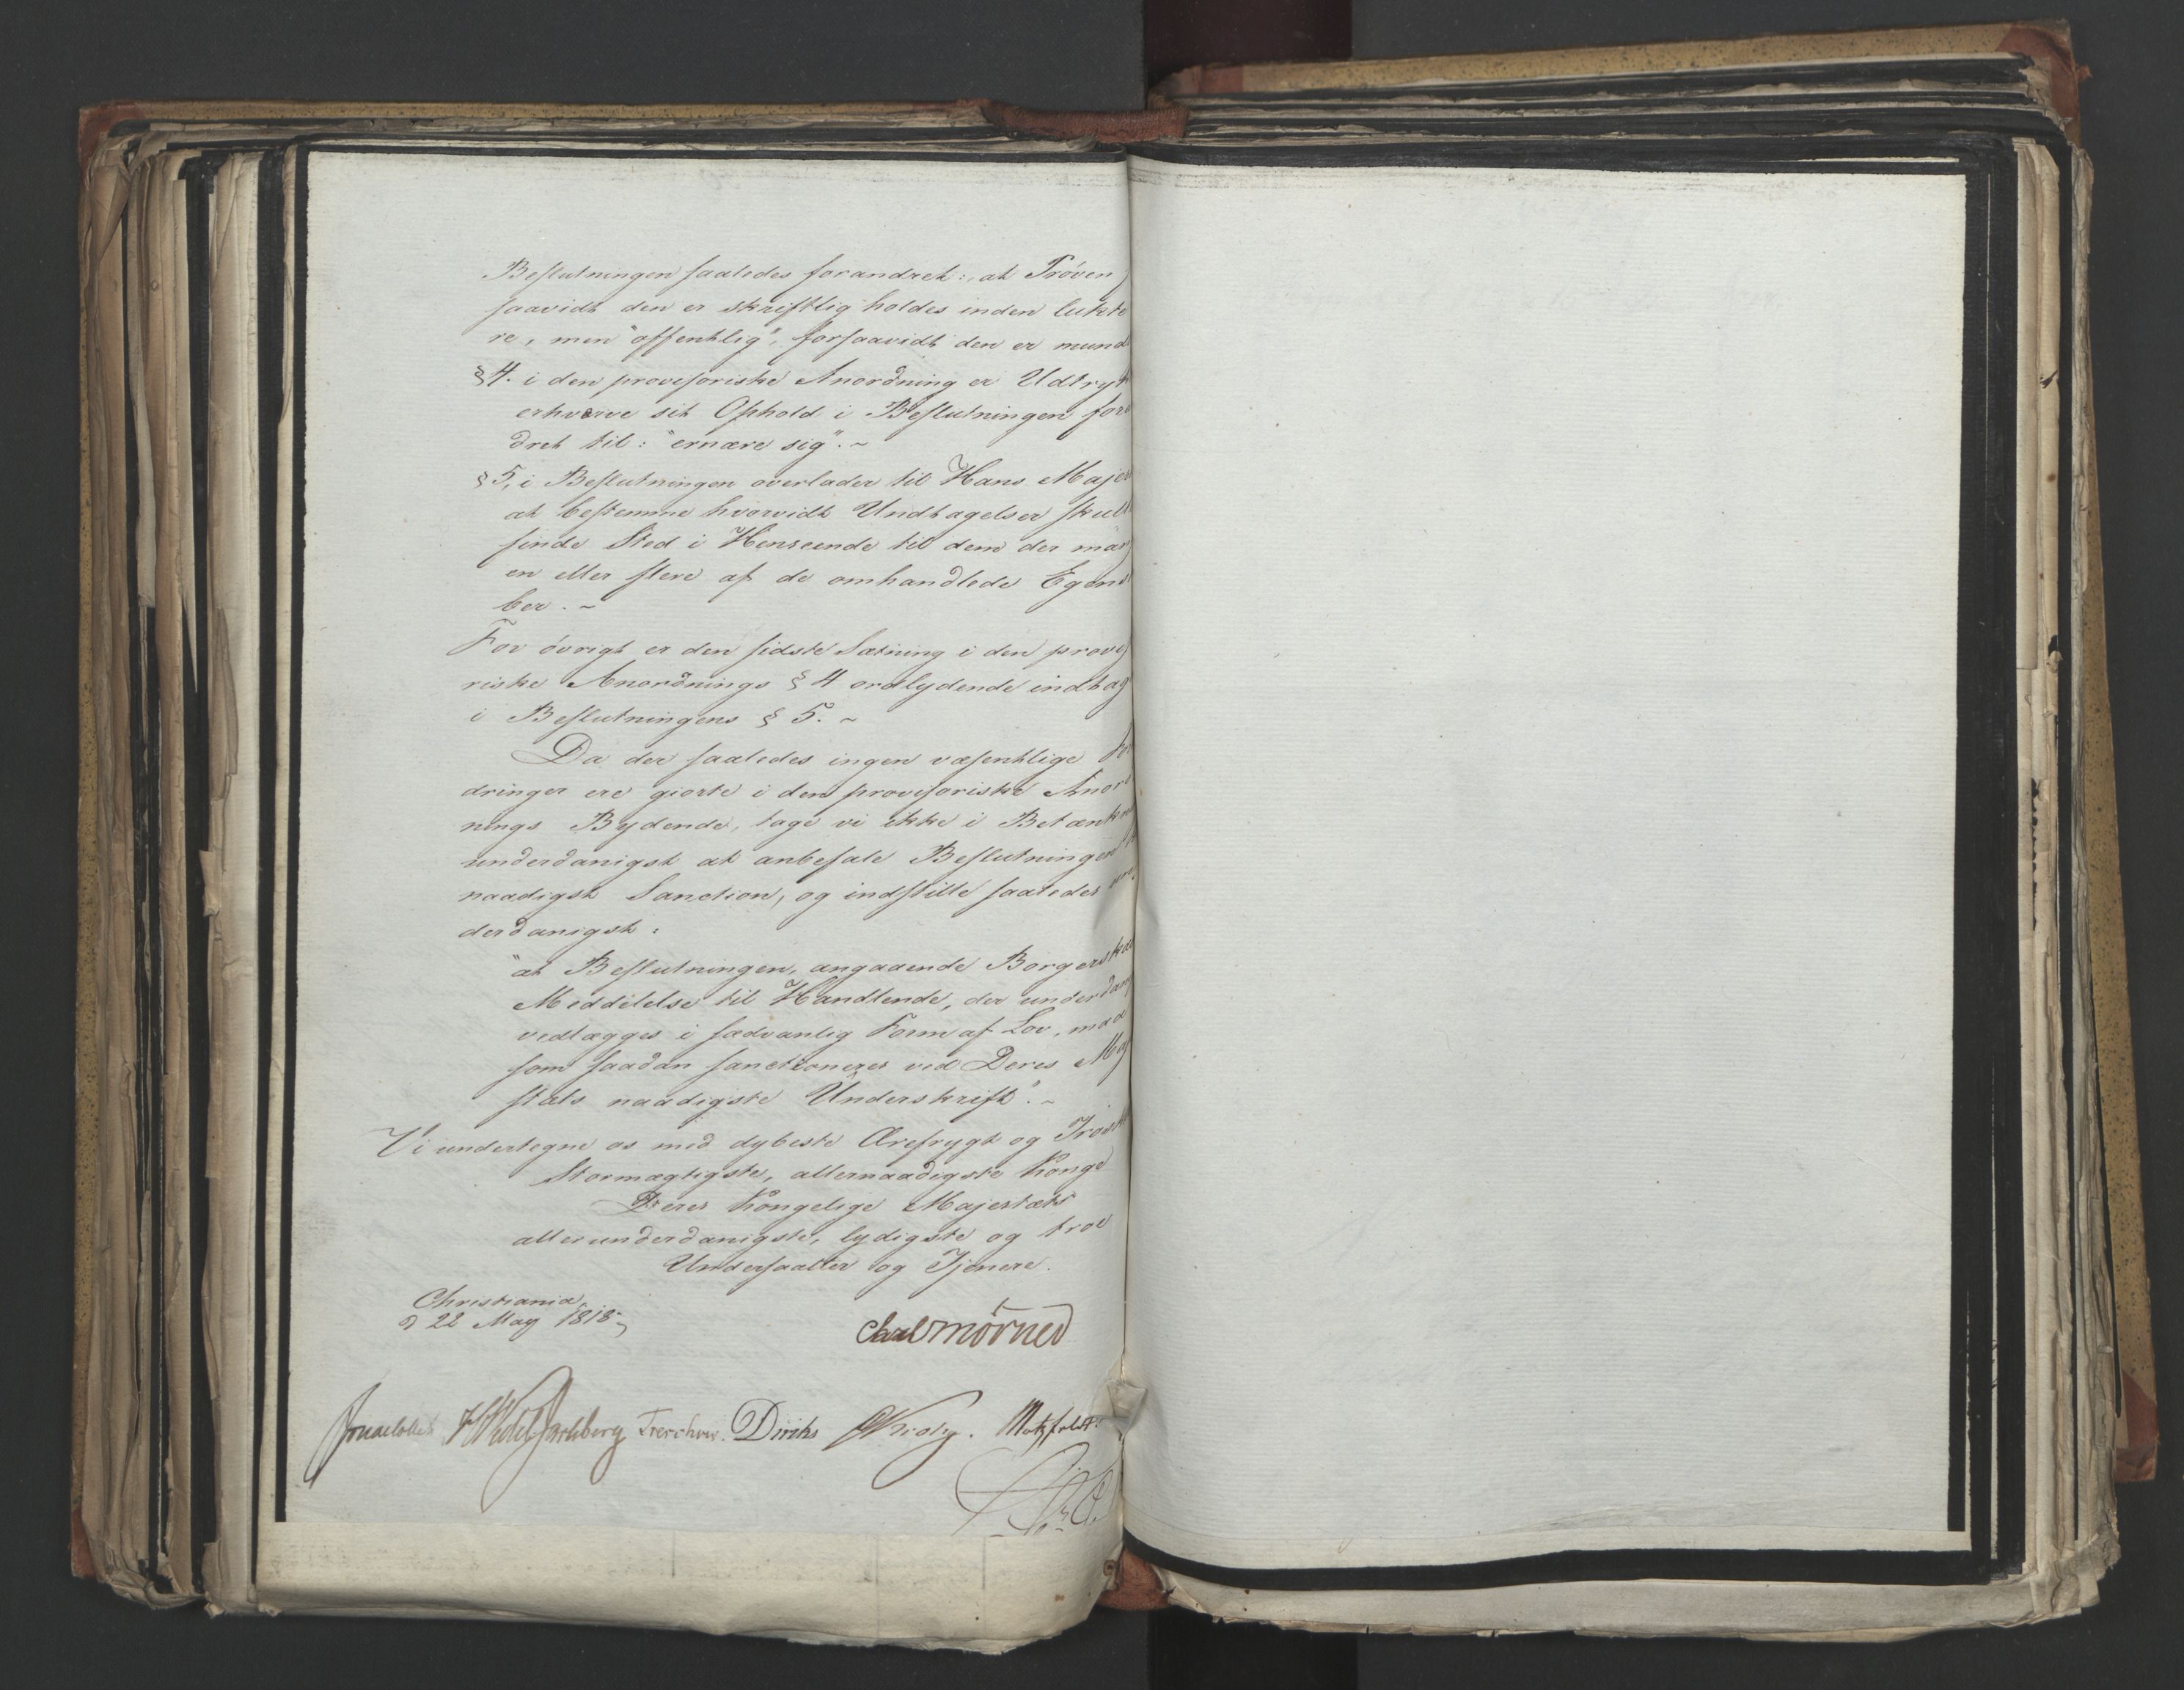 Beslutningen saaledes forandret: at Prøven
saavidt den er skriftlig holdes inden lukte
re, men "offentlig", forsaavidt den er mund
§4. i den provisoriske Anordning er Udtryk
erhverve sit Ophold i Beslutningen for
dret til: "ernære sig".~
§5, i Beslutningen overlader til Hans Maje
at bestemme hvorvidt Undtagelser skull
finde Sted i Henseende til dem der man
en eller flere af de omhandlede Egens
ber.~
For øvrigt er den sidste Sætning i den provi
riske Anordnings § 4 ordlydende indtag
i Beslutningens § 5.~
Da der saaledes ingen væsentlige For
dringer ere giorte i den provisoriske Anord
nings Bydende, tage vi ikke i Betænkn
underdanigst at anbefale Beslutningen
naadigst Sanction, og indstille saaledes
derdanigst:
"at Beslutningen, angaaende Borgerska
Meddelelse til Handlende, der underdan
vedlægges i sædvanlig Form af Lov, maa
som saadan sanctioneres ved Deres Maj
stæts naadigste Underskrift".~
Vi undertegne os med dybeste Ærefrygt og Trosk
Stormægtigste, allernaadigste Konge
Deres Kongelige Majestæts
allerunderdanigste, lydigste og troe
Undersaatter og Tjenere.
Christiania
d 22 May 1818
Carl Mörner
HWedel Jarlsberg Treschow. Diriks Krohg. Motzfeldt.